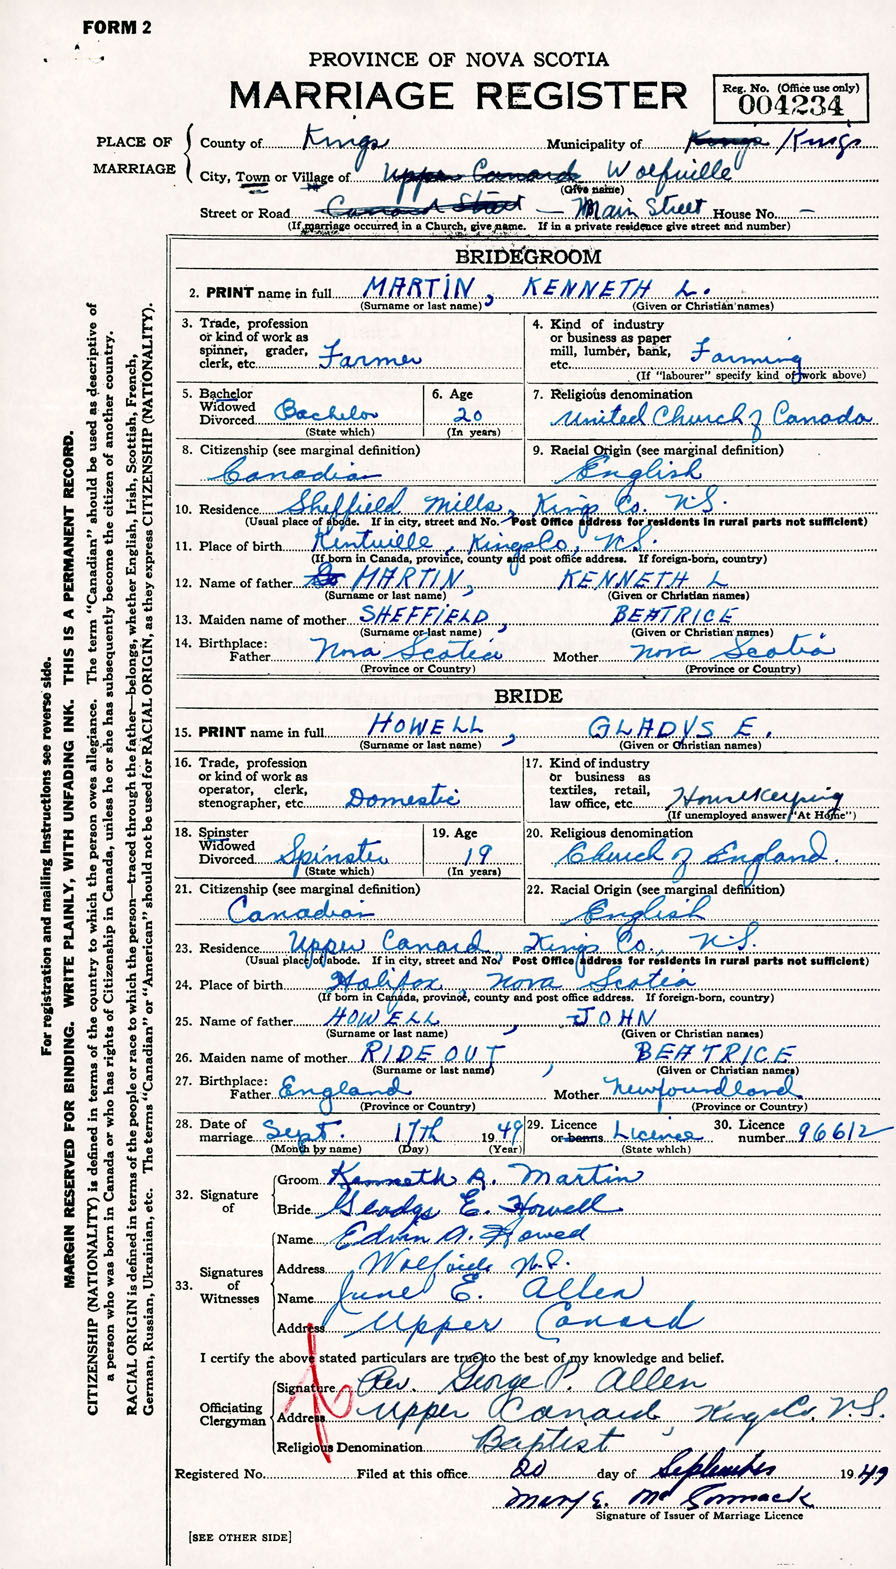 FORM 2
PROVINCE OF NOVA SCOTIA
MARRIAGE REGISTER
Reg. No. (Office use only)
004234
PLACE OF MARRIAGE
County of Kings Municipality of Kings / Kings
City, Town or Village of Upper Canard Wolfville
(Give name)
Street or Road Canard Street — Main Street House No. —
(If marriage occurred in a Church, give name. If in a private residence give street and number)
BRIDEGROOM
2. PRINT name in full MARTIN, KENNETH L.
(Surname or last name) (Given or Christian names)
3. Trade, profession or kind of work as spinner, grader, clerk, etc. Farmer
4. Kind of industry or business as paper mill, lumber, bank, etc. Farming
(If "labourer" specify kind of work above)
5. Bachelor Widowed Divorced Bachelor
(State which)
6. Age 20
(In years)
7. Religious denomination
United Church of Canada
8. Citizenship (see marginal definition)
Canadian
9. Racial Origin (see marginal definition)
English
10. Residence Sheffield Mills, Kings Co. N.S.
(Usual place of abode. If in city, street and No. Post Office address for residents in rural parts not sufficient)
11. Place of birth Kentville, Kings Co, N.S.
(If born in Canada, province, county and post office address. If foreign-born, country)
12. Name of father MARTIN, KENNETH L
(Surname or last name) (Given or Christian names)
13. Maiden name of mother SHEFFIELD, BEATRICE
(Surname or last name) (Given or Christian names)
14. Birthplace:
Father Nova Scotia Mother Nova Scotia
(Province or Country) (Province or Country)
BRIDE
15. PRINT name in full HOWELL, GLADYS E.
(Surname or last name) (Given or Christian names)
16. Trade, profession or kind of work as operator, clerk, stenographer, etc. Domestic
17. Kind of industry or business as textiles, retail, law office, etc. Housekeeping
(If unemployed answer "At Home")
18. Spinster Widowed Divorced Spinster
(State which)
19. Age 19
(In years)
20. Religious denomination
Church of England.
21. Citizenship (see marginal definition)
Canadian
22. Racial Origin (see marginal definition)
English
23. Residence Upper Canard, Kings Co., N.S.
(Usual place of abode. If in city, street and No. Post Office address for residents in rural parts not sufficient)
24. Place of birth Halifax, Nova Scotia
(If born in Canada, province, county and post office address. If foreign-born, country)
25. Name of father HOWELL, JOHN
(Surname or last name) (Given or Christian names)
26. Maiden name of mother RIDEOUT, BEATRICE
(Surname or last name) (Given or Christian names)
27. Birthplace:
Father England Mother Newfoundland
(Province or Country) (Province or Country)
28. Date of marriage Sept. 17th 1949
(Month by name) (Day) (Year)
29. Licence or banns Licence
(State which)
30. Licence number 96612
32. Signature of
Groom Kenneth R. Martin
Bride Gladys E. Howell
33. Signatures of Witnesses
Name Edwin A.
Address Wolfville N.S.
Name June E. Allen
Address Upper Canard
I certify the above stated particulars are true to the best of my knowledge and belief.
Officiating Clergyman
Signature Rev. George P. Allen
Address Upper Canard, Kings Co. N.S.
Religious Denomination Baptist
Registered No. Filed at this office 20 day of September 1949
Mary E. McCormack
Signature of Issuer of Marriage Licence
[SEE OTHER SIDE]
For registration and mailing instructions see reverse side.
MARGIN RESERVED FOR BINDING. WRITE PLAINLY, WITH UNFADING INK. THIS IS A PERMANENT RECORD.
CITIZENSHIP (NATIONALITY) is defined in terms of the country to which the person owes allegiance. The term "Canadian" should be used as descriptive of
a person who was born in Canada or who has rights of Citizenship in Canada, unless he or she has subsequently become the citizen of another country.
RACIAL ORIGIN is defined in terms of the people or race to which the person—traced through the father—belongs, whether English, Irish, Scottish, French,
German, Russian, Ukrainian, etc. The terms "Canadian" or "American" should not be used for RACIAL ORIGIN, as they express CITIZENSHIP (NATIONALITY).